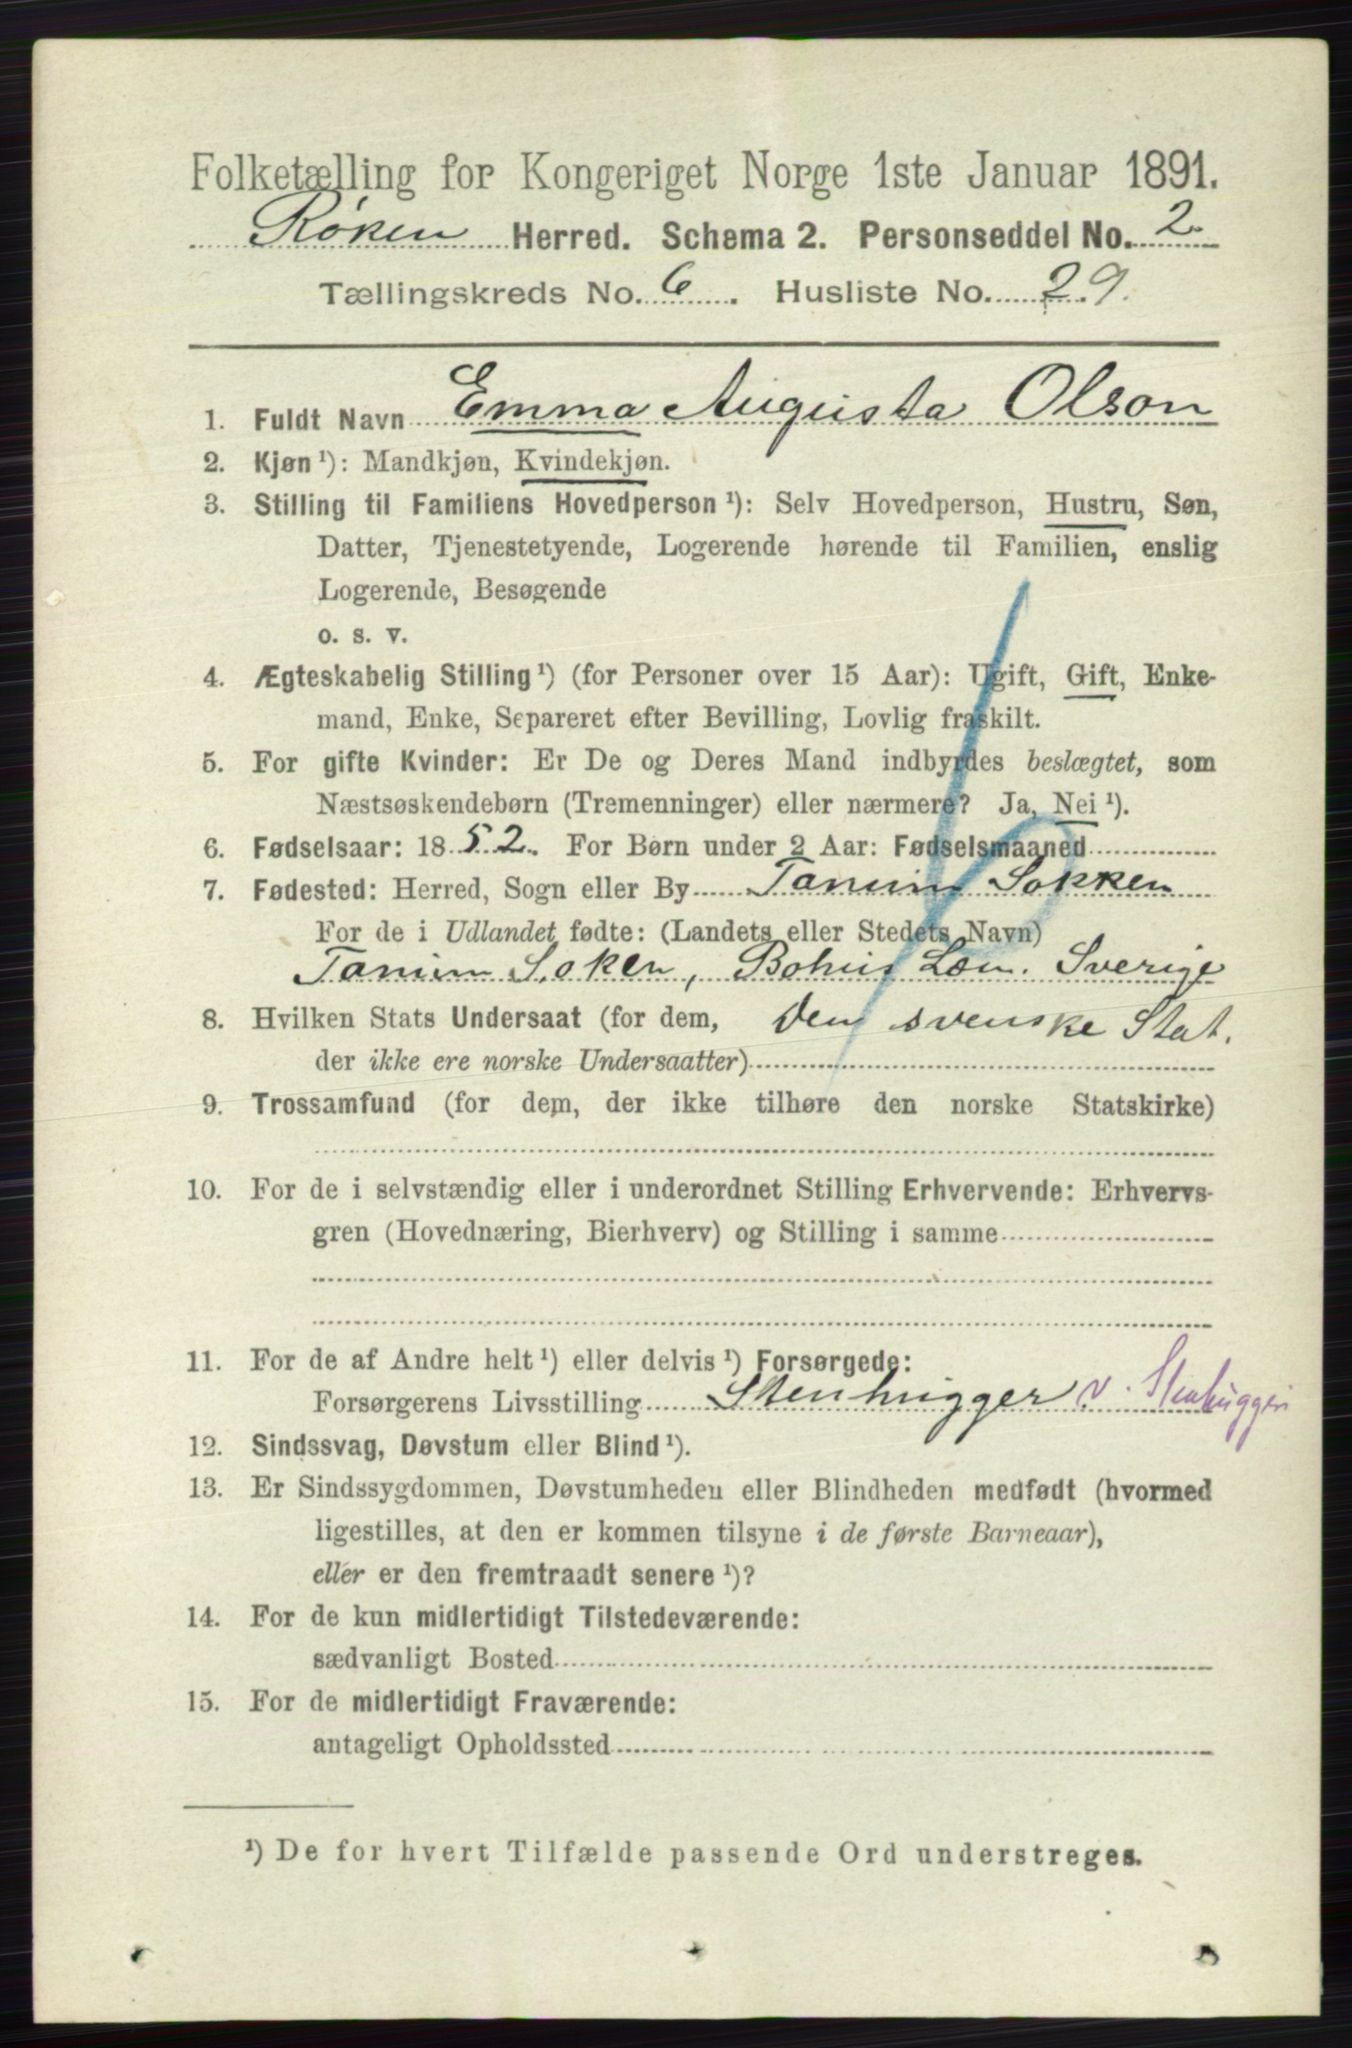 Folketælling for Kongeriget Norge 1ste Januar 1891.
Røken Herred. Schema 2. Personseddel No. 2.
Tællingskreds No. 6. Husliste No. 29.
1. Fuldt Navn Emma Augusta Olson
2. Kjøn ¹): Mandkjøn, Kvindekjøn.
3. Stilling til Familiens Hovedperson ¹): Selv Hovedperson, Hustru, Søn,
Datter, Tjenestetyende, Logerende hørende til Familien, enslig
Logerende, Besøgende
o. s. v.
4. Ægteskabelig Stilling ¹) (for Personer over 15 Aar): Ugift, Gift, Enke-
mand, Enke, Separeret efter Bevilling, Lovlig fraskilt.
5. For gifte Kvinder: Er De og Deres Mand indbyrdes beslægtet, som
Næstsøskendebørn (Tremenninger) eller nærmere? Ja, Nei ¹).
6. Fødselsaar: 1852. For Børn under 2 Aar: Fødselsmaaned
7. Fødested: Herred, Sogn eller By Tanum Sokken
For de i Udlandet fødte: (Landets eller Stedets Navn)
Tanum Soken, Bohus Læn. Sverige
8. Hvilken Stats Undersaat (for dem, Den svenske Stat.
der ikke ere norske Undersaatter)
9. Trossamfund (for dem, der ikke tilhøre den norske Statskirke)
10. For de i selvstændig eller i underordnet Stilling Erhvervende: Erhvervs-
gren (Hovednæring, Bierhverv) og Stilling i samme
11. For de af Andre helt ¹) eller delvis ¹) Forsørgede:
Forsørgerens Livsstilling Stenhugger v. Stenhuggeri
12. Sindssvag, Døvstum eller Blind ¹).
13. Er Sindssygdommen, Døvstumheden eller Blindheden medfødt (hvormed
ligestilles, at den er kommen tilsyne i de første Barneaar),
eller er den fremtraadt senere ¹)?
14. For de kun midlertidigt Tilstedeværende:
sædvanligt Bosted
15. For de midlertidigt Fraværende:
antageligt Opholdssted
¹) De for hvert Tilfælde passende Ord understreges.